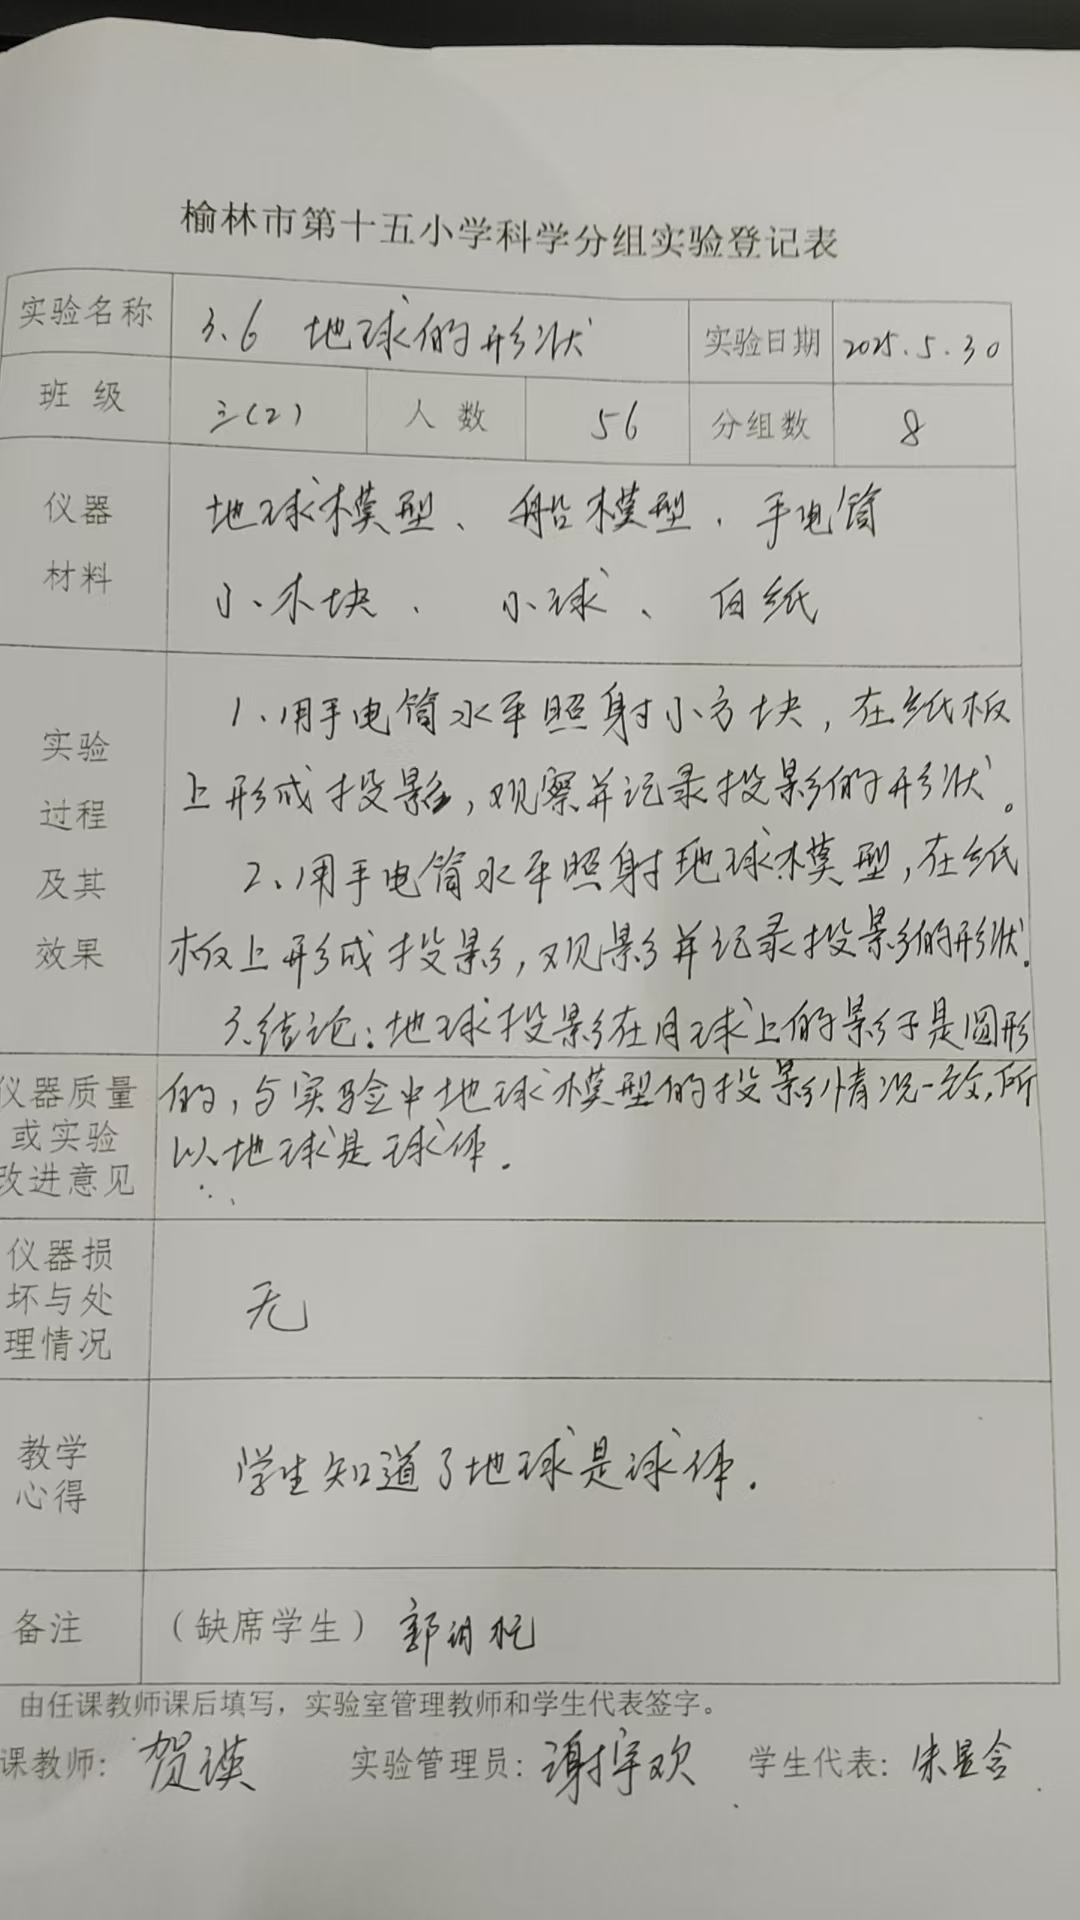 榆林市第十五小学科学分组实验登记表
实验名称 3.6 地球的形状 实验日期 2025.5.30
班 级 三(2) 人 数 56 分组数 8
仪器 地球模型、船模型、手电筒
材料 小木块、小球、白纸
实验 1、用手电筒水平照射小方块，在纸板
过程 上形成投影，观察并记录投影的形状。
及其 2、用手电筒水平照射地球模型，在纸
效果 板上形成投影，观影并记录投影的形状.
3.结论：地球投影在月球上的影子是圆形
仪器质量 的，与实验中地球模型的投影情况一致，所
或实验 以地球是球体.
改进意见
仪器损
坏与处 无
理情况
教学 学生知道了地球是球体.
心得
备注 （缺席学生）郭
由任课教师课后填写，实验室管理教师和学生代表签字。
课教师: 贺瑛 实验管理员: 谢宇欢 学生代表: 朱昱含